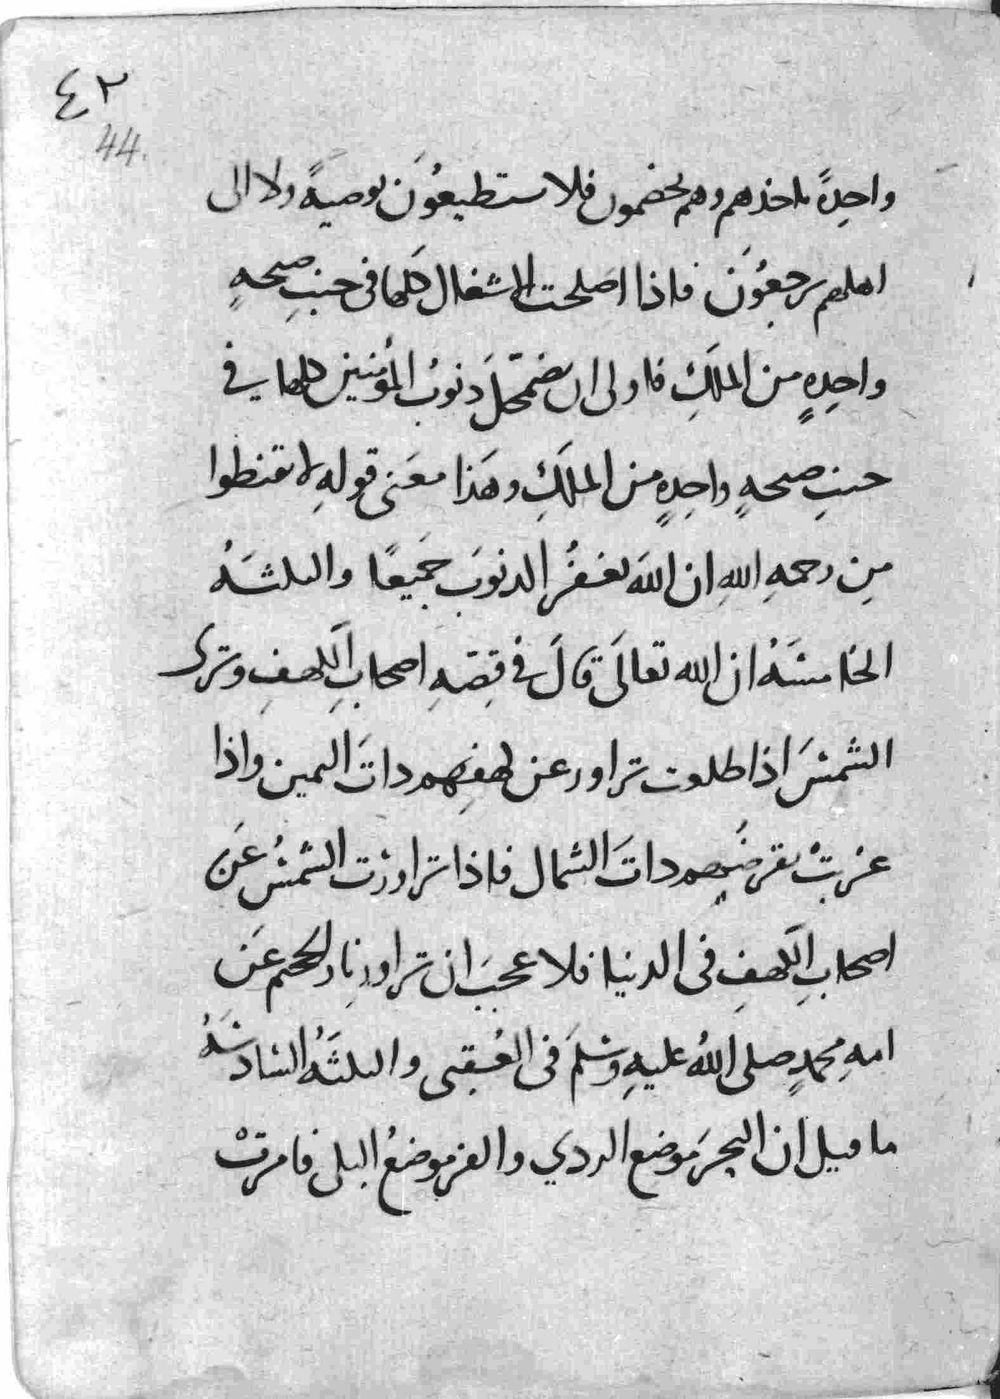 ٤٢
44.
واحِدةً تاخذهم وهم يخصمون فلا يستطيعُونَ توصيةً ولا الى
اهلهم يرجعُونَ فاذا اصلحت الاشغال كلها فى جنبِ صيحةٍ
واحِدةٍ من الملَكِ فاولى ان يضمحلَ ذنوبُ المؤمنين كلها فى
جنبِ صيحةٍ واحِدةٍ من الملَكِ وهَذا معَنى قولهِ لا تقنطوا
مِن رحمهِ اللهِ ان اللهَ يغفرُ الذنوبَ جَميعًا والثلثهُ
الخامسَهُ ان الله تعالَى قالَ فى قصّهِ اصحابِ الكَهفِ وترى
الشمسَ اذا طلعت تزاور عن كهفِهِم ذاتَ اليمين واذا
غربتْ تقرضُهِم ذاتَ الشمال فاذا تزاورَت الشمسُ عَن
اصحابِ الكَهفِ فى الدنيا فلا عجبَ ان تزاور نار الجحيم عَن
امهِ محمدٍ صلى اللهُ عليهِ وسَلمَ فى العُقبى والثلثَهُ السادسَهُ
ما قيل ان البحرَ موضع الردي والقرموضعُ البلى فامرتْ